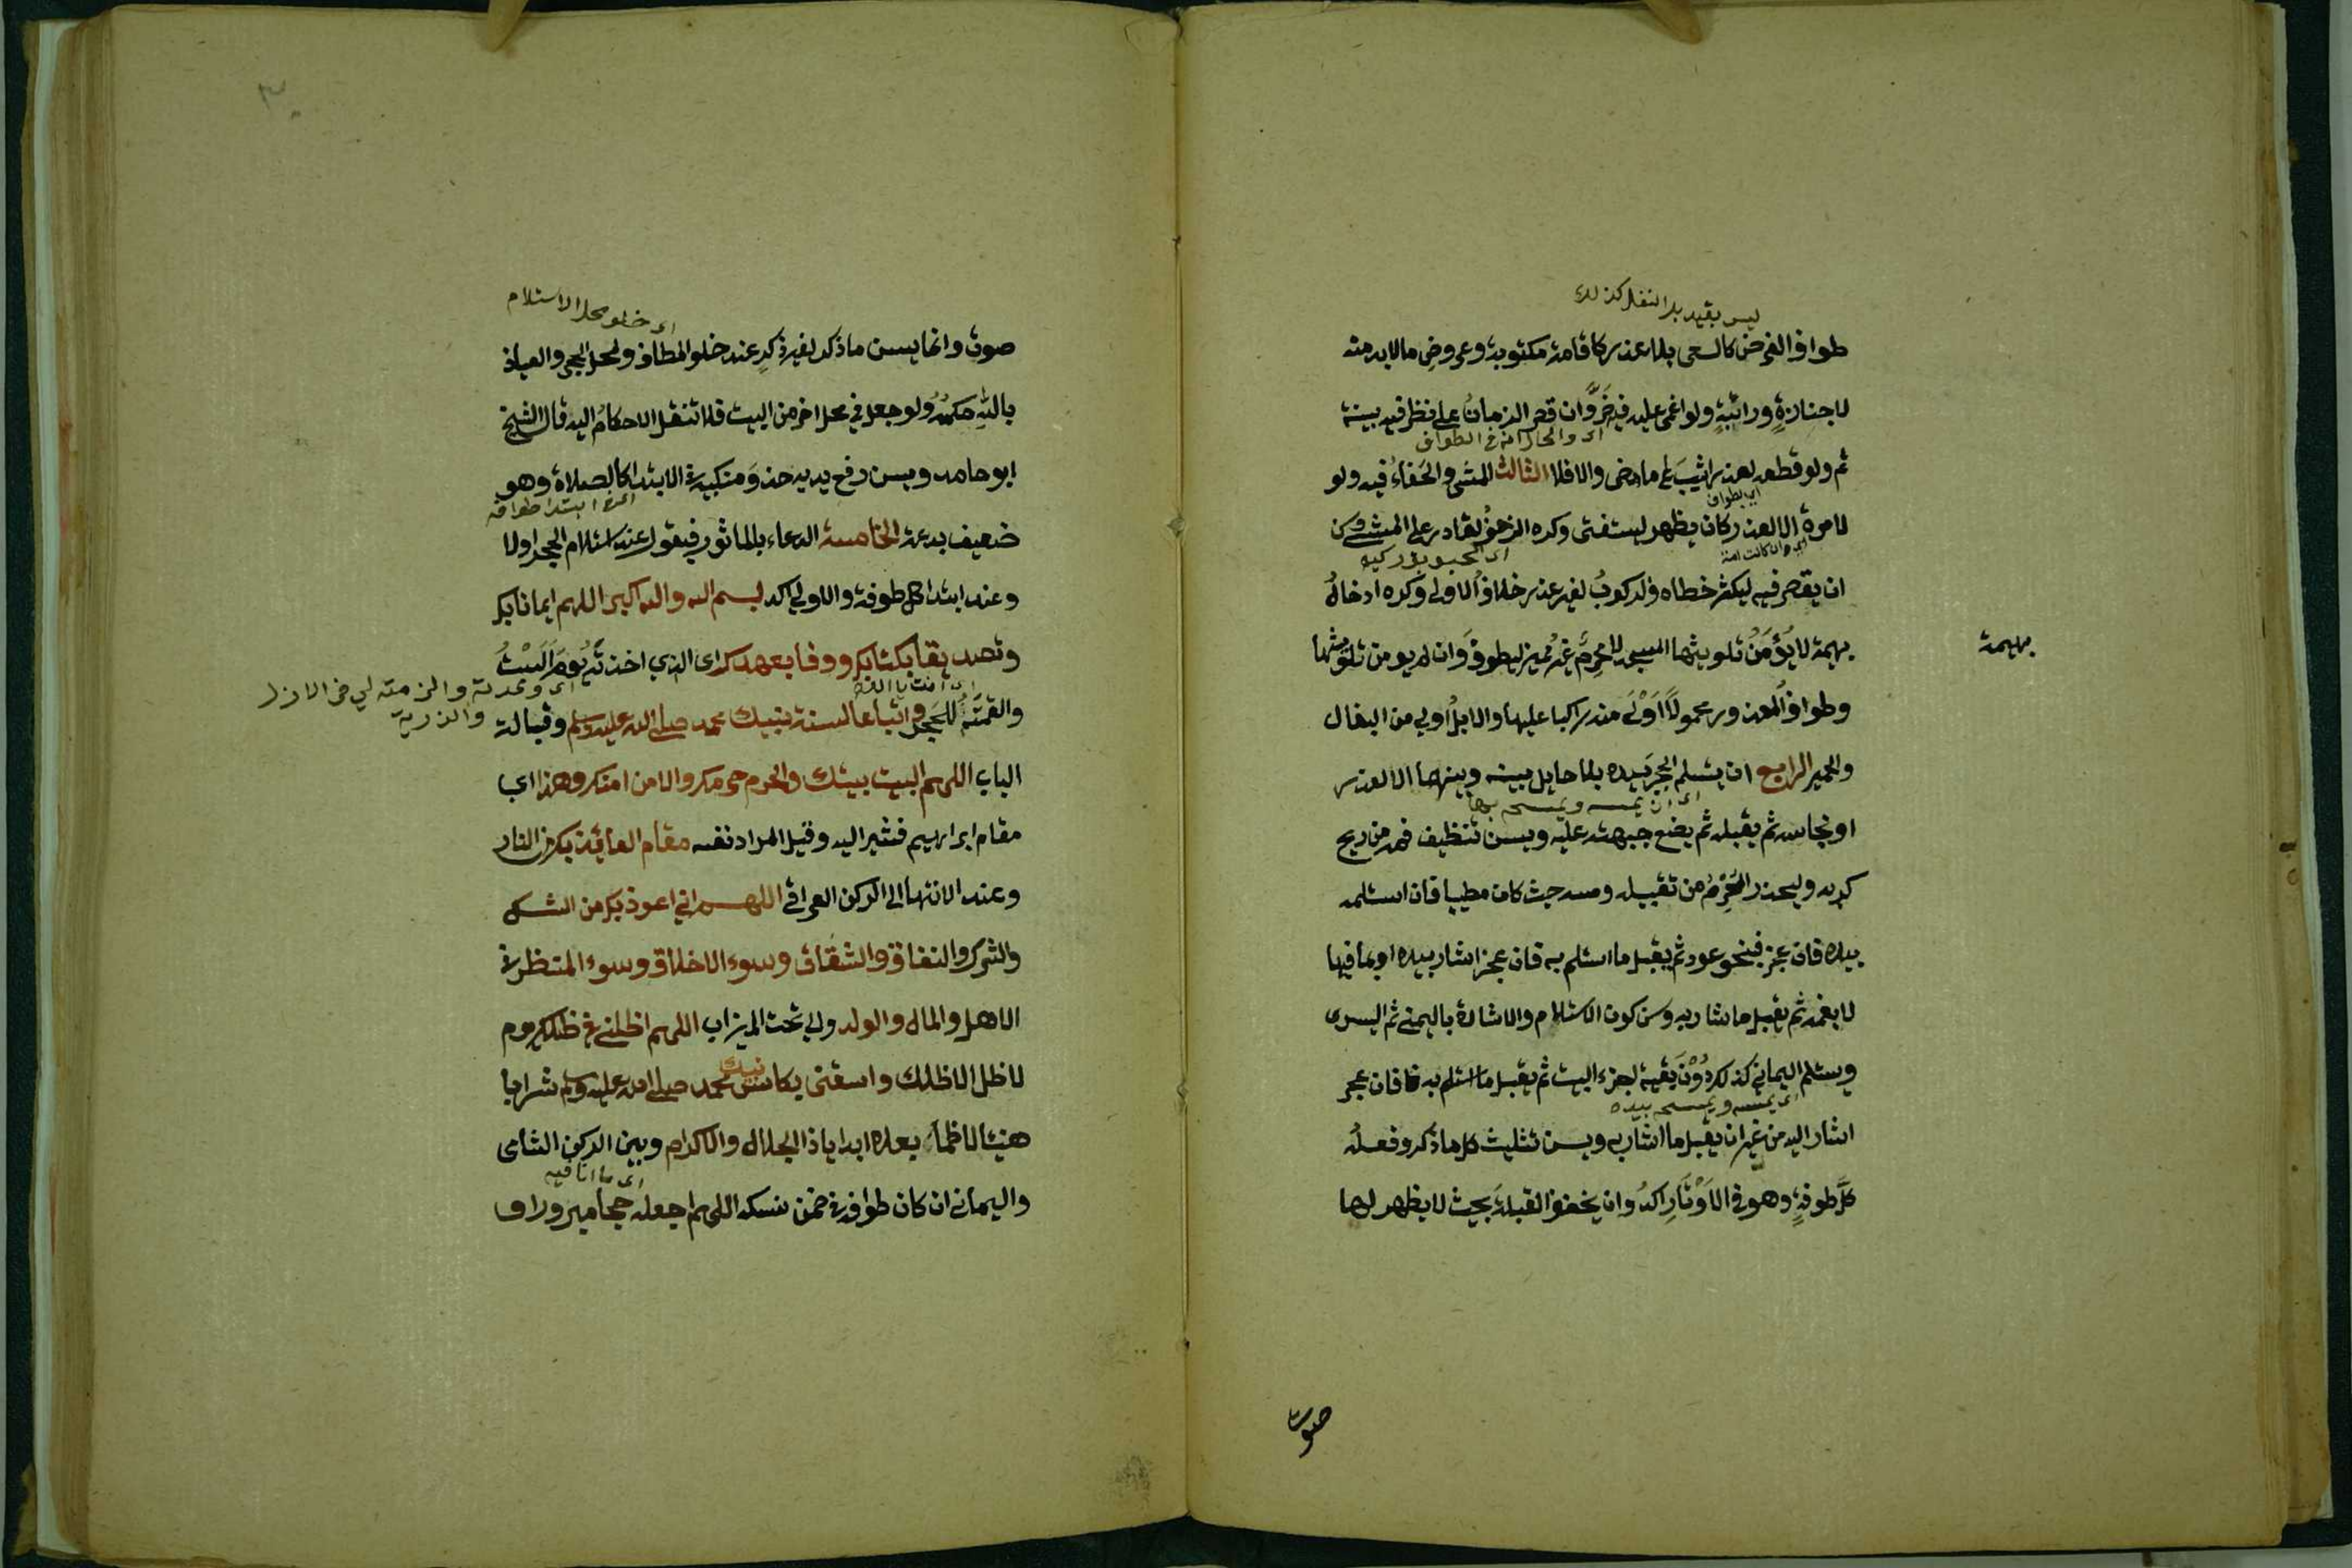 ليس بقيد بل النفل كذلك
طواف الفرض كالسعي بلا عذر كاقامة مكتوبة وعروض مالابد منه
لا جنازةٍ وراتبةٍ ولو اغمى عليه فيه ضَرَّ وان قصر الزمان على نظر فيه بينته
اى والحال انه فى الطواف
ثم ولو قطعه لعذر اثيب على ما مضى والا فلا الثالث المشى والحفاء فيه ولو
اى بالطواف
لامرة الا لعذر كان يظهر ليستفتى وكره الزحف لقادر على المشى وسن
اى وان كانت امنة
اى المحبوب وركبه
ان يقصر فيه ليكثر خطاه والركوب لغير عذر خلاف الاولى وكره ادخال
بهيمة لا يُؤمَنُ تلويثها المسجد لا محرم غير مميز ليطوف وان لم يومن تلويثها
بهيمة
وطواف المعذور محمولًا اَوْلَى منه راكبا عليها والابل أولى من البغال
والحمير الرابع ان يستلم الحجر بيده بلا حايل بينه وبينهما الا لعذر
اى ان يمسه ويمسحه بها
او نجاسه ثم يقبله ثم يضع جبهته عليه ويسن تنظيف فمه من ريح
كريه وليحذر المُحْرِمُ من تقبيله ومسه حيث كان مطيبا فان استلمه
بيده فان عجز فبنحو عود ثم يقبل ما استلم به فان عجز اشار بيده او بما فيها
لا بفمه ثم يقبل ما اشار به وسن كون الاستلام والاشارة باليمنى ثم اليسرى
ويستلم اليماني كذلك دُوْنَ بقية اجزاء البيت ثم يقبل ما استلم به فان عجز
اى يمسه ويمسحه بيده
اشار اليه من غير ان يقبل ما اشار به ويسن تثليث كل ما ذكر وفعلُه
كلَّ طوفةٍ وهو فى الاَوْتَارِ اكدُ وان يخفف القبلة بحيث لا يظهر لها
صوت
اى خلو محل الاستلام
صوت وانما يسن ما ذكر لغير ذكر عند خلو المطاف ولمحل الحجر والعياذ
بالله حكمه ولو جعل في محل اخر من البيت فلا تنتقل الاحكام اليه قال الشيخ
ابو حامد ويسن رفع يديه حذو منكبيه في الابتداء كالصلاة وهو
اى فى ابتدا طوافه
ضعيف بدعة الخامسة الدعاء بالماثور فيقول عند استلام الحجر اولا
وعند ابتدا كل طوفة والاولى اكد بسم الله والله اكبر اللهم ايمانا بك
وتصديقا بكتابك ووفا بعهدك اى الذي اخذته يومَ اَلَسْتُ
اى وعدته والزمته لي فى الازل
اى امنت بالله
والقمته للحجر واتباعا لسنة نبيك محمد صلى الله عليه وسلم وقبالة
والذرية
الباب اللهم البيت بيتك والحرم حرمك والامن امنك وهذا اى
مقام ابراهيم فتشير اليه وقيل المراد نفسه مقام العائذ بك من النار
وعند الانتهاء الى الركن العراقي اللهم اني اعوذ بك من الشك
والشرك والنفاق والشقاق وسوء الاخلاق وسوء المنظر فى
الاهل والمال والولد ولي تحت الميزاب اللهم اظلنى فى ظلك يوم
لا ظل الا ظلك واسقنى بكاس نبيك محمد صلى الله عليه وسلم شرابا
هنيئا لا اظما بعده ابدا ياذا الجلال والاكرام وبين الركن الشامى
اى ما انا فيه
واليمانى ان كان طوافه فى ضمن نسكه اللهم اجعله حجا مبرورا ف